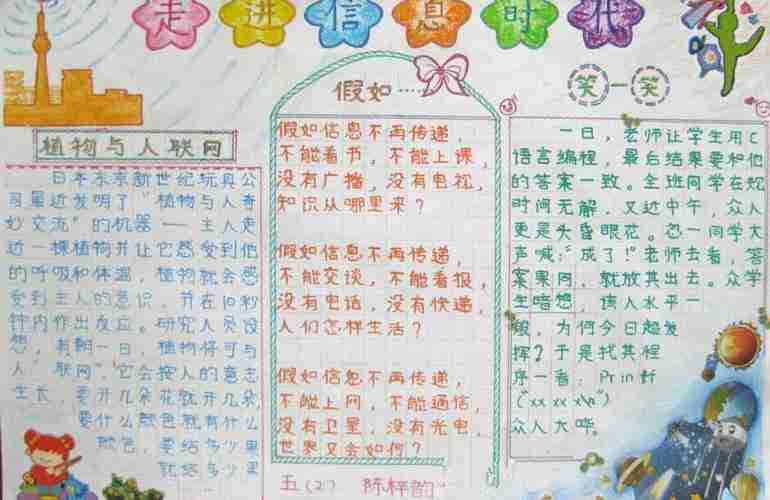 走进信息时代
植物与人联网
日本东京新世纪玩具公
司最近发明了“植物与人奇
妙交流”的机器——主人走
近一棵植物并让它感受到他
的呼吸和体温，植物就会感
受到主人的意识，并在10秒
钟内作出反应。研究人员设
想，有朝一日，植物将可与
人“联网”，它会按人的意志
生长，要开几朵花就开几朵，
要什么颜色就有什么
颜色，要结多少果
就结多少果
假如……
假如信息不再传递，
不能看书，不能上课，
没有广播，没有电视，
知识从哪里来？
假如信息不再传递，
不能交谈，不能看报，
没有电话，没有快递，
人们怎样生活？
假如信息不再传递，
不能上网，不能通信，
没有卫星，没有光电，
世界又会如何？
五(2) 陈梓韵
笑一笑
一日，老师让学生用C
语言编程，最后结果要和他
的答案一致。全班同学在短
时间无解，又过中午，众人
更是头昏眼花。忽一同学大
声喊：“成了！”老师去看，答
案果同，就放其出去。众学
生暗想，该人水平一
般，为何今日超发
挥？于是找其程
序一看：Printf
("xx xx x\n")
众人大哗。